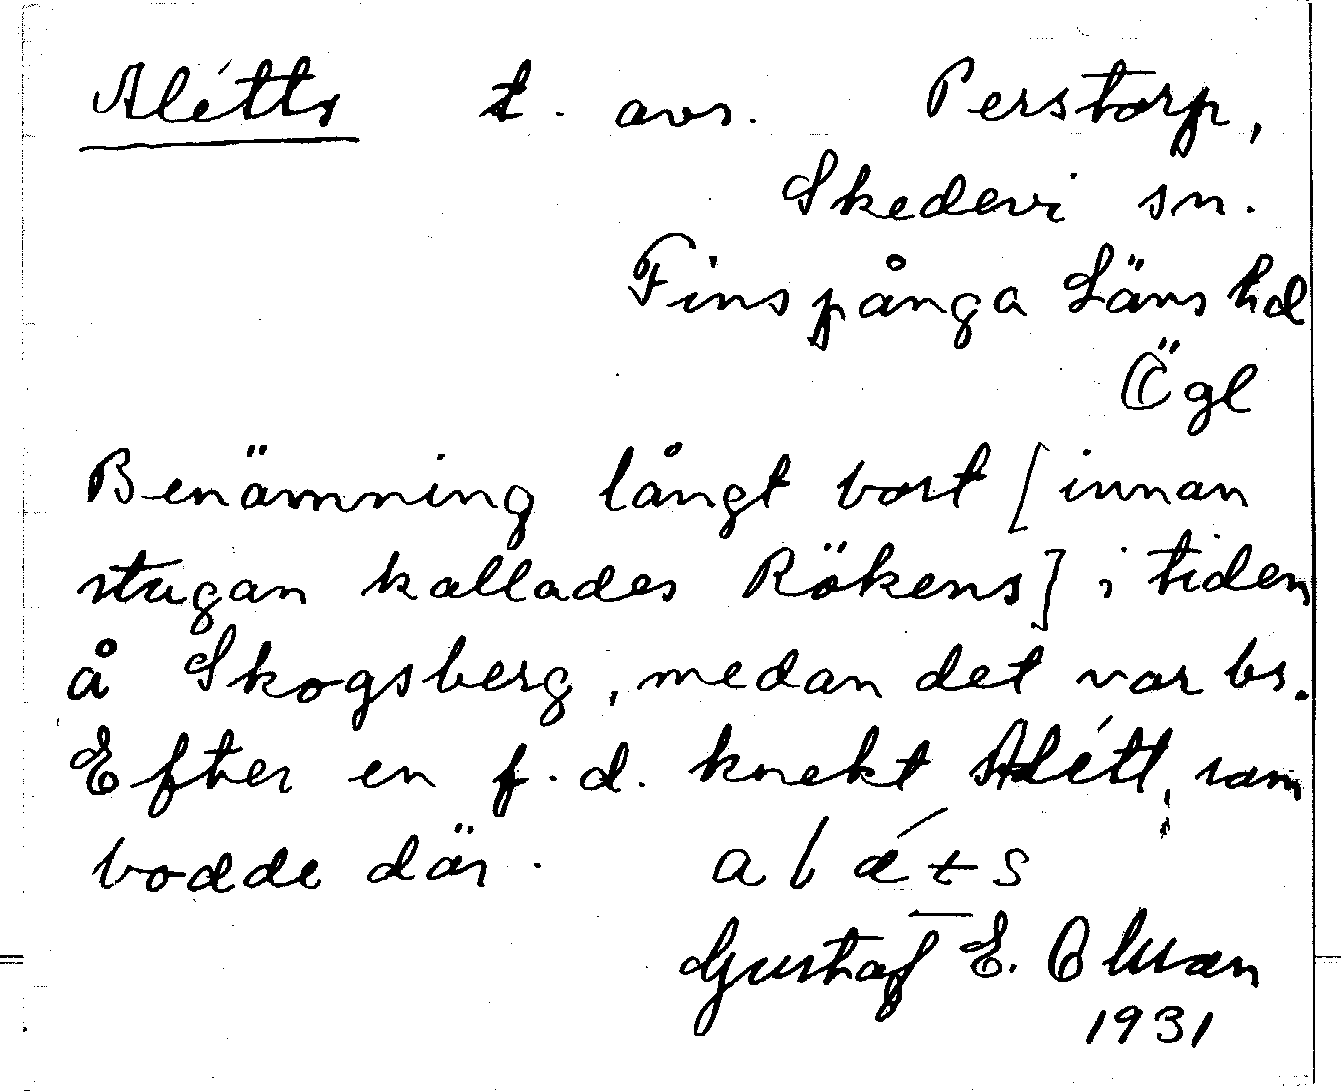 Alétts t. avs. Perstorp,
Skedevi sn.
Finspånga Läns hd
Ögl
Benämning långt bort [innan
stugan kallades Rökens] i tiden
å Skogsberg, medan det var bs.
Efter en f.d. knekt Alétt, som
bodde där.
Gustaf E. Olsson
1931